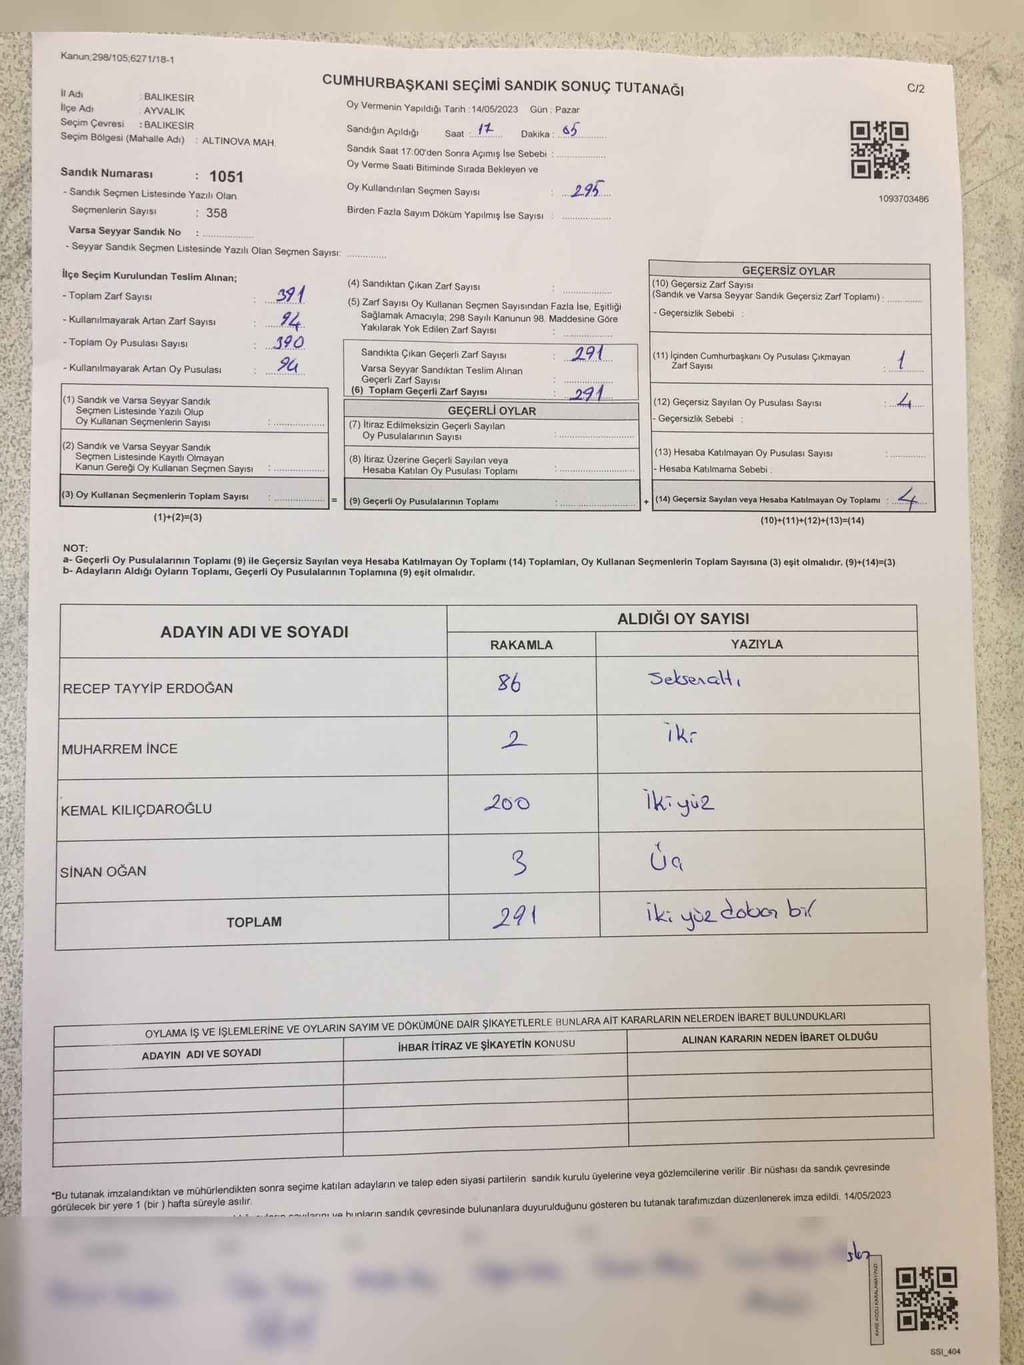 Kanun;298/105;6271/18-1
CUMHURBAŞKANI SEÇİMİ SANDIK SONUÇ TUTANAĞI
C/2
İl Adı : BALIKESİR
İlçe Adı : AYVALIK
Seçim Çevresi : BALIKESİR
Seçim Bölgesi (Mahalle Adı) : ALTINOVA MAH.
Sandık Numarası : 1051
- Sandık Seçmen Listesinde Yazılı Olan
Seçmenlerin Sayısı : 358
Varsa Seyyar Sandık No :
- Seyyar Sandık Seçmen Listesinde Yazılı Olan Seçmen Sayısı:
Oy Vermenin Yapıldığı Tarih :14/05/2023 Gün : Pazar
Sandığın Açıldığı Saat : 17 Dakika : 05
Sandık Saat 17:00'den Sonra Açımış İse Sebebi :
Oy Verme Saati Bitiminde Sırada Bekleyen ve
Oy Kullandırılan Seçmen Sayısı : 295
Birden Fazla Sayım Döküm Yapılmış İse Sayısı :
1093703486
İlçe Seçim Kurulundan Teslim Alınan;
- Toplam Zarf Sayısı : 391
- Kullanılmayarak Artan Zarf Sayısı : 94
- Toplam Oy Pusulası Sayısı : 390
- Kullanılmayarak Artan Oy Pusulası : 94
(1) Sandık ve Varsa Seyyar Sandık
Seçmen Listesinde Yazılı Olup
Oy Kullanan Seçmenlerin Sayısı :
(2) Sandık ve Varsa Seyyar Sandık
Seçmen Listesinde Kayıtlı Olmayan
Kanun Gereği Oy Kullanan Seçmen Sayısı :
(3) Oy Kullanan Seçmenlerin Toplam Sayısı : =
(1)+(2)=(3)
(4) Sandıktan Çıkan Zarf Sayısı :
(5) Zarf Sayısı Oy Kullanan Seçmen Sayısından Fazla İse, Eşitliği
Sağlamak Amacıyla; 298 Sayılı Kanunun 98. Maddesine Göre
Yakılarak Yok Edilen Zarf Sayısı :
Sandıkta Çıkan Geçerli Zarf Sayısı : 291
Varsa Seyyar Sandıktan Teslim Alınan
Geçerli Zarf Sayısı :
(6) Toplam Geçerli Zarf Sayısı : 291
GEÇERLİ OYLAR
(7) İtiraz Edilmeksizin Geçerli Sayılan
Oy Pusulalarının Sayısı :
(8) İtiraz Üzerine Geçerli Sayılan veya
Hesaba Katılan Oy Pusulası Toplamı :
(9) Geçerli Oy Pusulalarının Toplamı : +
GEÇERSİZ OYLAR
(10) Geçersiz Zarf Sayısı
(Sandık ve Varsa Seyyar Sandık Geçersiz Zarf Toplamı) :
- Geçersizlik Sebebi :
(11) İçinden Cumhurbaşkanı Oy Pusulası Çıkmayan
Zarf Sayısı : 1
(12) Geçersiz Sayılan Oy Pusulası Sayısı : 4
- Geçersizlik Sebebi :
(13) Hesaba Katılmayan Oy Pusulası Sayısı :
- Hesaba Katılmama Sebebi :
(14) Geçersiz Sayılan veya Hesaba Katılmayan Oy Toplamı : 4
(10)+(11)+(12)+(13)=(14)
NOT:
a- Geçerli Oy Pusulalarının Toplamı (9) ile Geçersiz Sayılan veya Hesaba Katılmayan Oy Toplamı (14) Toplamları, Oy Kullanan Seçmenlerin Toplam Sayısına (3) eşit olmalıdır. (9)+(14)=(3)
b- Adayların Aldığı Oyların Toplamı, Geçerli Oy Pusulalarının Toplamına (9) eşit olmalıdır.
ADAYIN ADI VE SOYADI ALDIĞI OY SAYISI
RAKAMLA YAZIYLA
RECEP TAYYİP ERDOĞAN 86 Seksenaltı
MUHARREM İNCE 2 İki
KEMAL KILIÇDAROĞLU 200 İki yüz
SİNAN OĞAN 3 Üç
TOPLAM 291 İki yüz doksan bir
OYLAMA İŞ VE İŞLEMLERİNE VE OYLARIN SAYIM VE DÖKÜMÜNE DAİR ŞİKAYETLERLE BUNLARA AİT KARARLARIN NELERDEN İBARET BULUNDUKLARI
ADAYIN ADI VE SOYADI İHBAR İTİRAZ VE ŞİKAYETİN KONUSU ALINAN KARARIN NEDEN İBARET OLDUĞU
*Bu tutanak imzalandıktan ve mühürlendikten sonra seçime katılan adayların ve talep eden siyasi partilerin sandık kurulu üyelerine veya gözlemcilerine verilir .Bir nüshası da sandık çevresinde
görülecek bir yere 1 (bir ) hafta süreyle asılır.
ve bunların sandık çevresinde bulunanlara duyurulduğunu gösteren bu tutanak tarafımızdan düzenlenerek imza edildi. 14/05/2023
KARE KODU KARALAMAYINIZ!
SSI_404